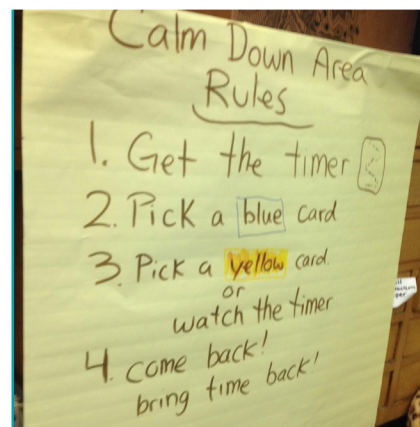 Calm Down Area
Rules
1. Get the timer
2. Pick a blue card
3. Pick a yellow card.
or
watch the timer
4. come back!
bring time back!